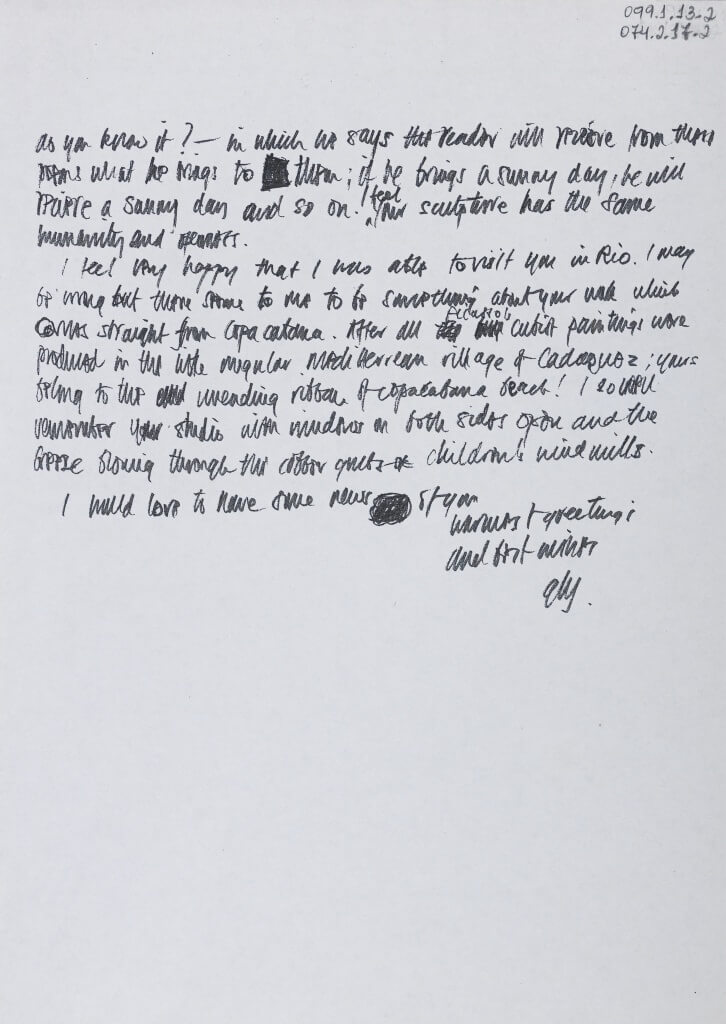 099.1.13-2
074.2.17-2
as you know it? — in which he says the reader will receive from these
poems what he brings to them; if he brings a sunny day, he will
receive a sunny day and so on. I feel your sculpture has the same
humanity and
I feel very happy that I was able to visit you in Rio. I may
be wrong but there seems to me to be something about your work which
comes straight from Copacabana. After all cubist paintings were
produced in the little angular Mediterrean village of Cadaquez; yours
belong to the unending ribbon of Copacabana beach! I so well
remember your studio with windows on both sides open and the
breeze blowing through the children's windmills.
I would love to have some news of you
warmest greetings
and best wishes
guy.